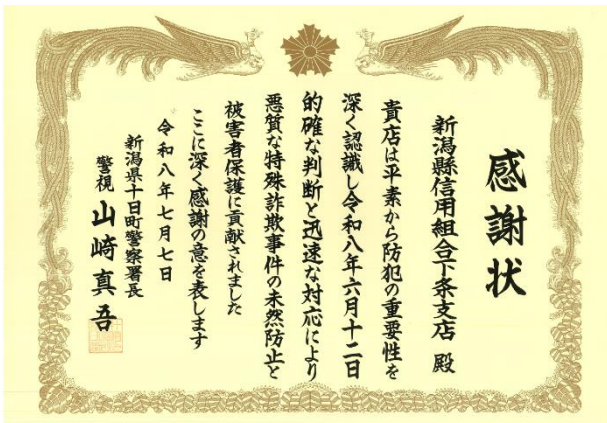 感謝状
新潟縣信用組合下条支店 殿
貴店は平素から防犯の重要性を
深く認識し令和八年六月十二日
的確な判断と迅速な対応により
悪質な特殊詐欺事件の未然防止と
被害者保護に貢献されました
ここに深く感謝の意を表します
令和八年七月七日
新潟県十日町警察署長
警視 山崎真吾